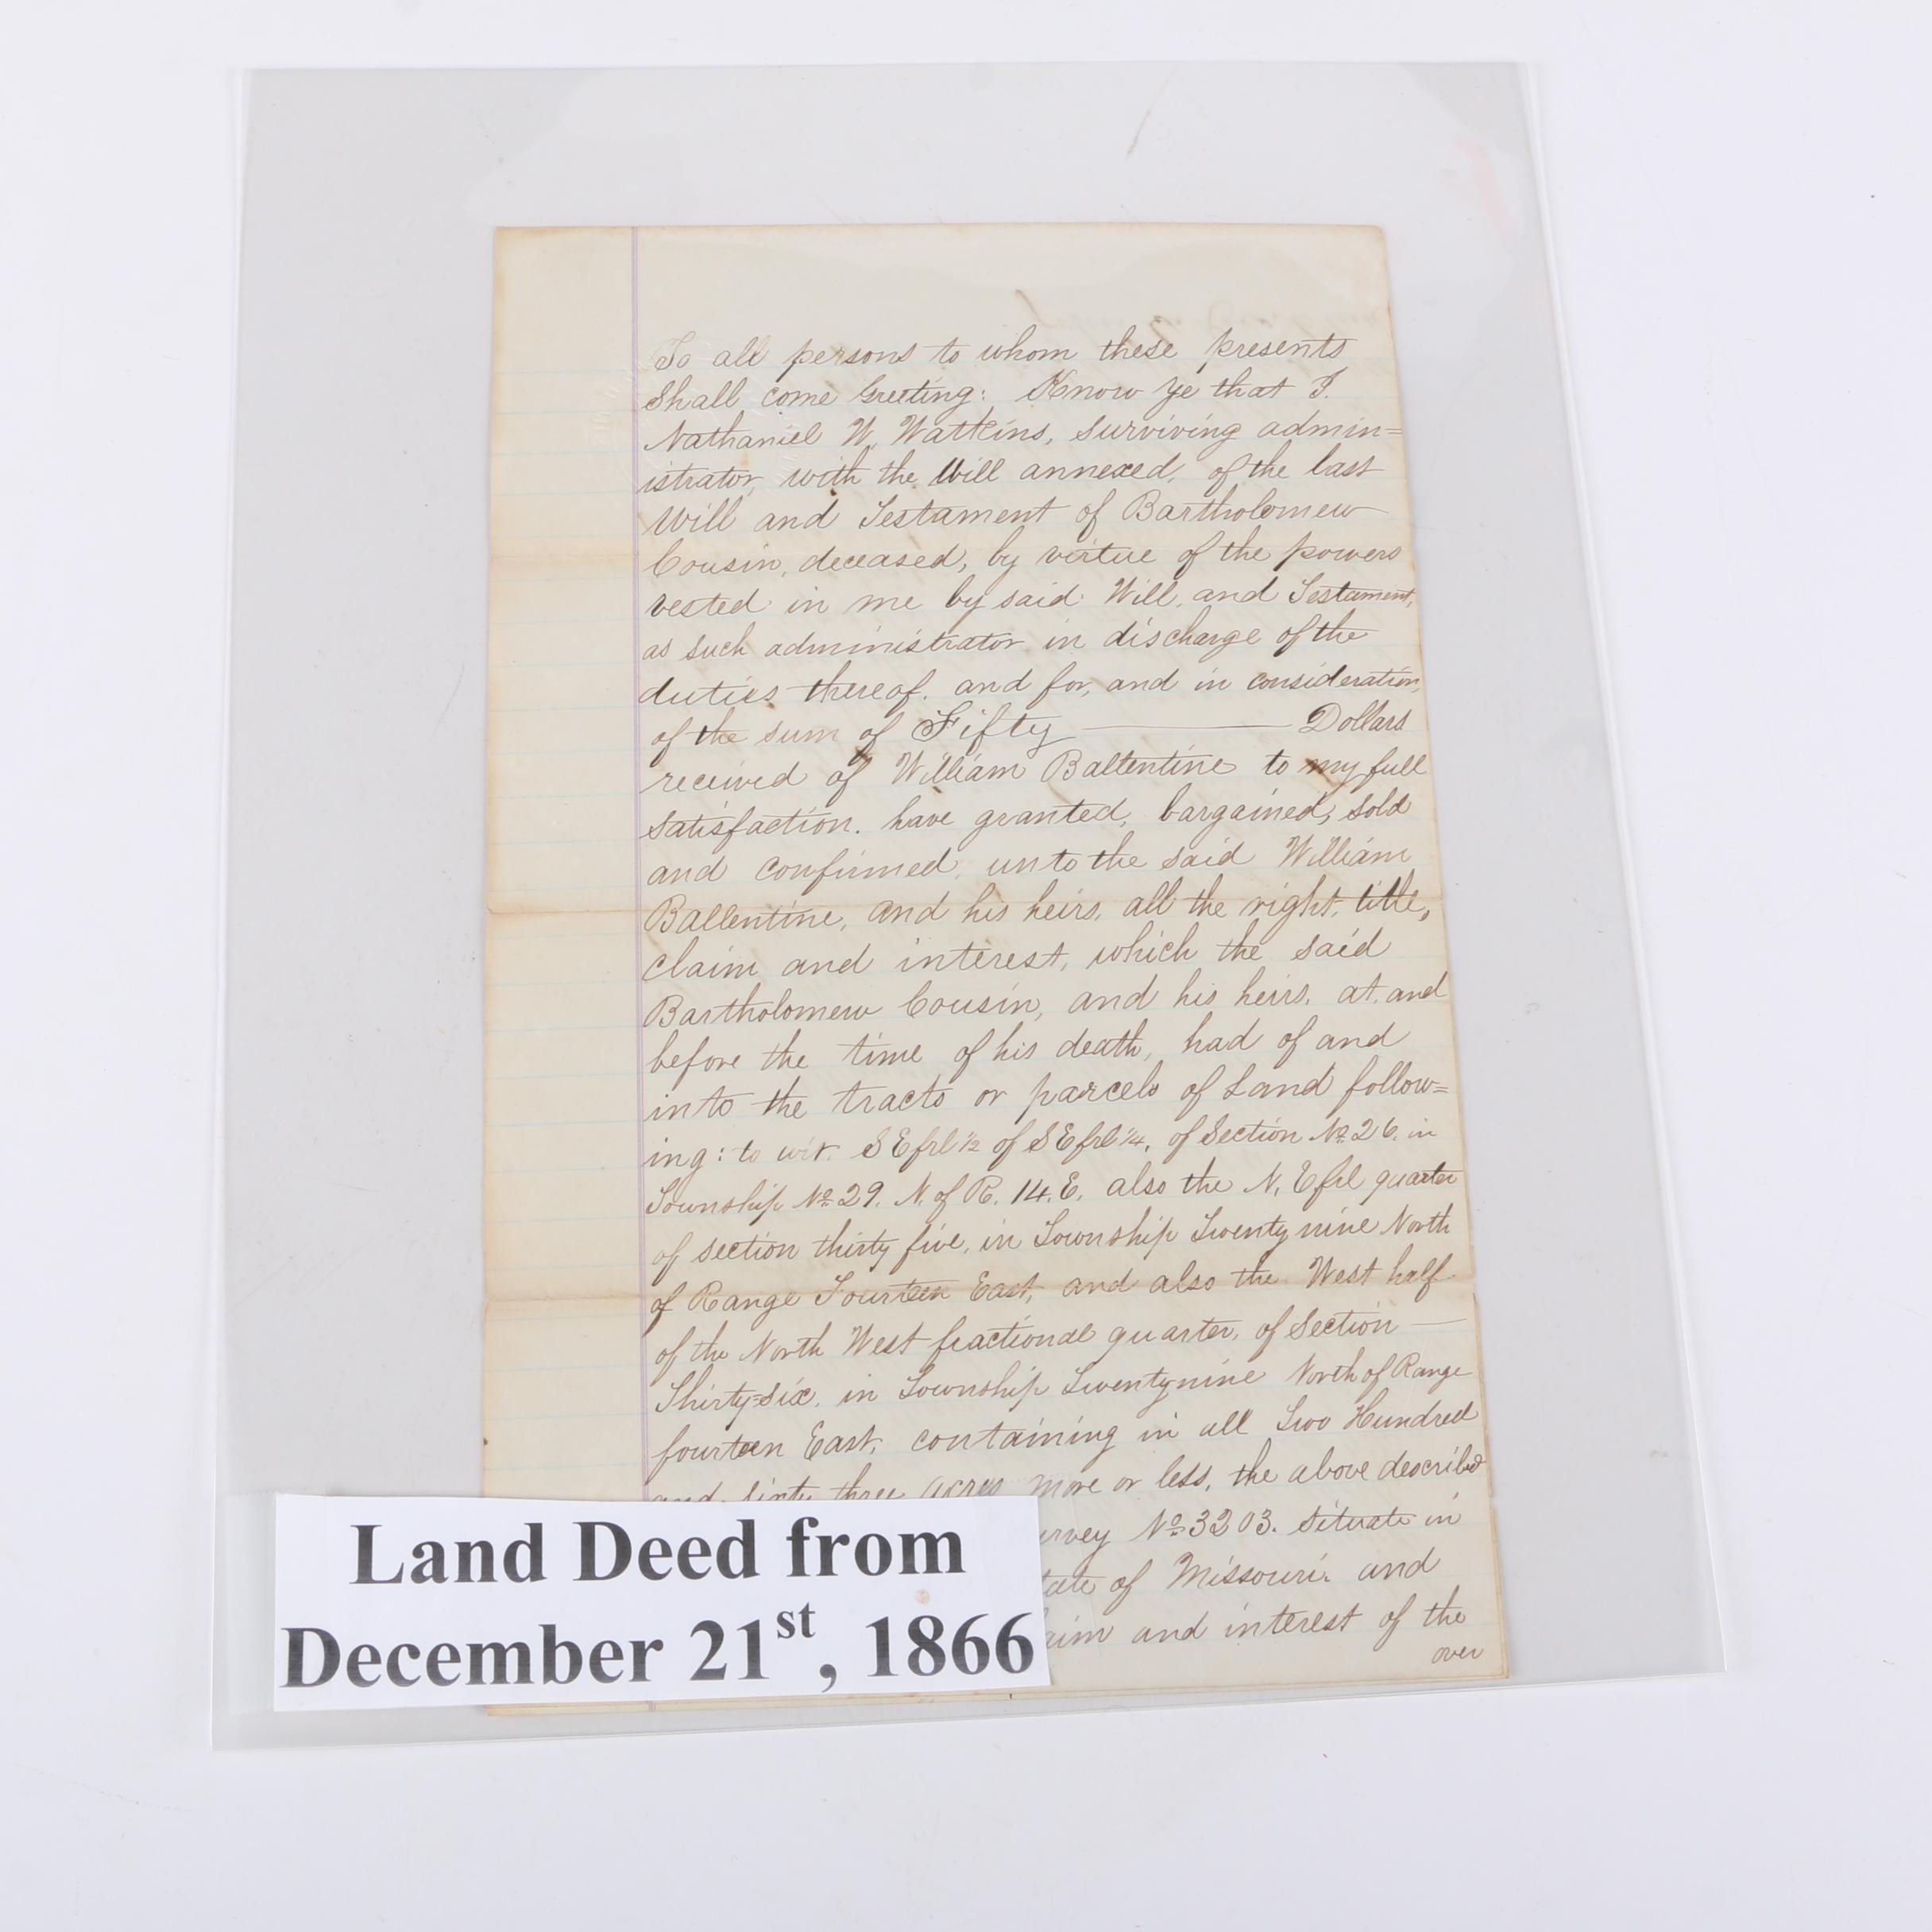 To all persons to whom these presents
Shall come Greeting: Know ye that I.
Nathaniel W. Watkins, surviving admin=
istrator, with the Will annexed, of the last
Will and Testament of Bartholomew
Cousin, deceased, by virtue of the powers
vested in me by said Will, and Testament,
as such administrator in discharge of the
duties thereof. and for, and in consideration,
of the sum of Fifty ——— Dollars
received of William Ballentine to my full
satisfaction. have granted, bargained, sold
and confirmed, unto the said William
Ballentine, and his heirs, all the right, title,
claim and interest, which the said
Bartholomew Cousin, and his heirs, at, and
before the time of his death, had of and
into the tracts or parcels of Land follow=
ing: to wit. S E frl ½ of S E frl ¼, of Section No. 26, in
Township No. 29. N. of R. 14. E. also the N. E frl quarter
of section thirty five, in Township Twenty nine North
of Range Fourteen East, and also the West half
of the North West fractional quarter, of Section —
Thirty=six, in Township Twentynine North of Range
fourteen East, containing in all Two Hundred
and sixty three acres more or less, the above described
urvey No. 3203. situate in
tate of Missouri. and
laim and interest of the
over
Land Deed from
December 21st, 1866